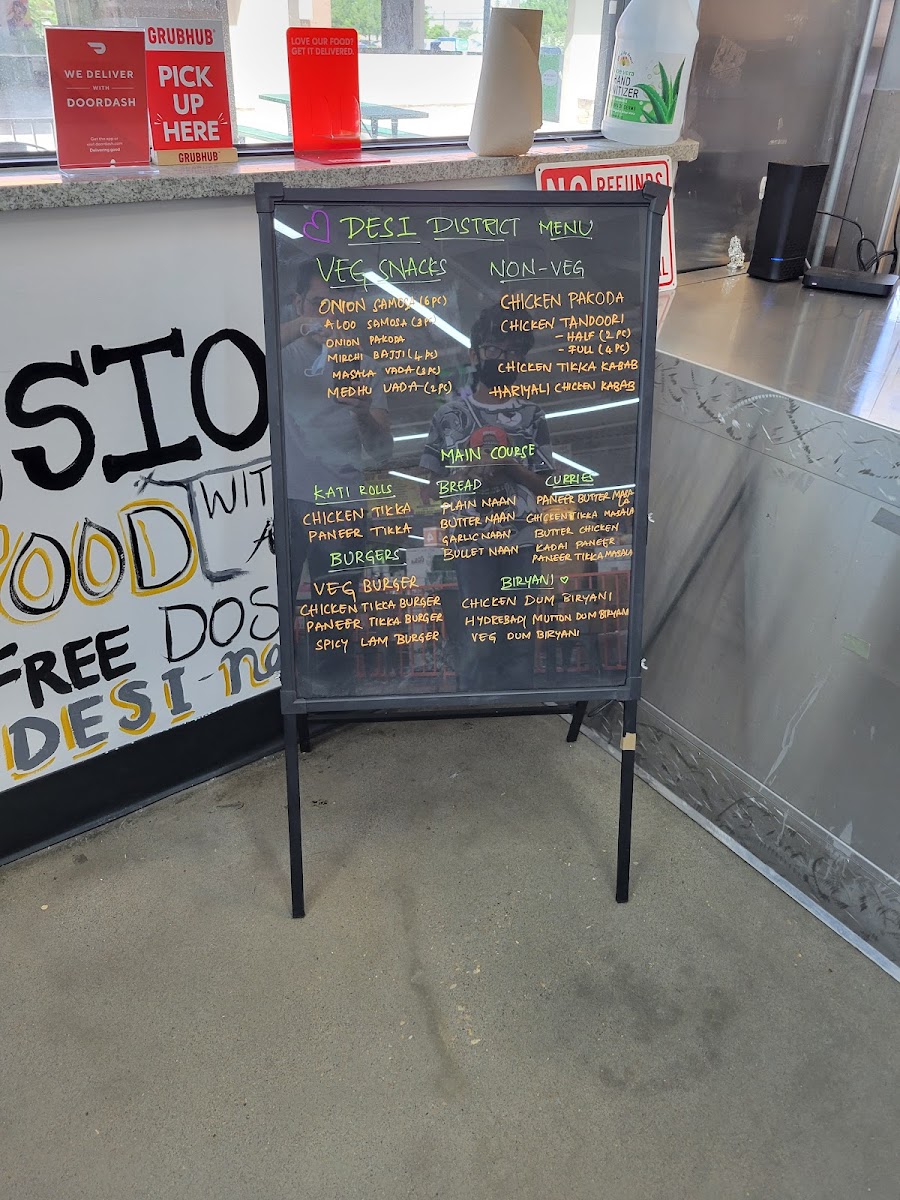 WE DELIVER
WITH
DOORDASH
Delivering good
GRUBHUB
PICK
UP
HERE
GRUBHUB
LOVE OUR FOOD?
GET IT DELIVERED.
HAND
NO REFUNDS
DESI DISTRICT MENU
VEG SNACKS
ONION SAMOSA (6 PC)
ALOO SAMOSA (3 PC)
ONION PAKODA
MIRCHI BAJJI (4 PC)
MASALA VADA (3 PC)
MEDHU VADA (2 PC)
NON-VEG
CHICKEN PAKODA
CHICKEN TANDOORI
- HALF (2 PC)
- FULL (4 PC)
CHICKEN TIKKA KABAB
HARIYALI CHICKEN KABAB
MAIN COURSE
KATI ROLLS
CHICKEN TIKKA
PANEER TIKKA
BURGERS
VEG BURGER
CHICKEN TIKKA BURGER
PANEER TIKKA BURGER
SPICY LAM BURGER
BREAD
PLAIN NAAN
BUTTER NAAN
GARLIC NAAN
BULLET NAAN
CURRIES
PANEER BUTTER MASA
LA
CHICKEN TIKKA MASALA
BUTTER CHICKEN
KADAI PANEER
PANEER TIKKA MASALA
BIRYANI
CHICKEN DUM BIRYANI
HYDREBADI MUTTON DUM BIRYANI
VEG DUM BIRYANI
SIO
OOD
WIT
A
FREE DOS
DESI-n